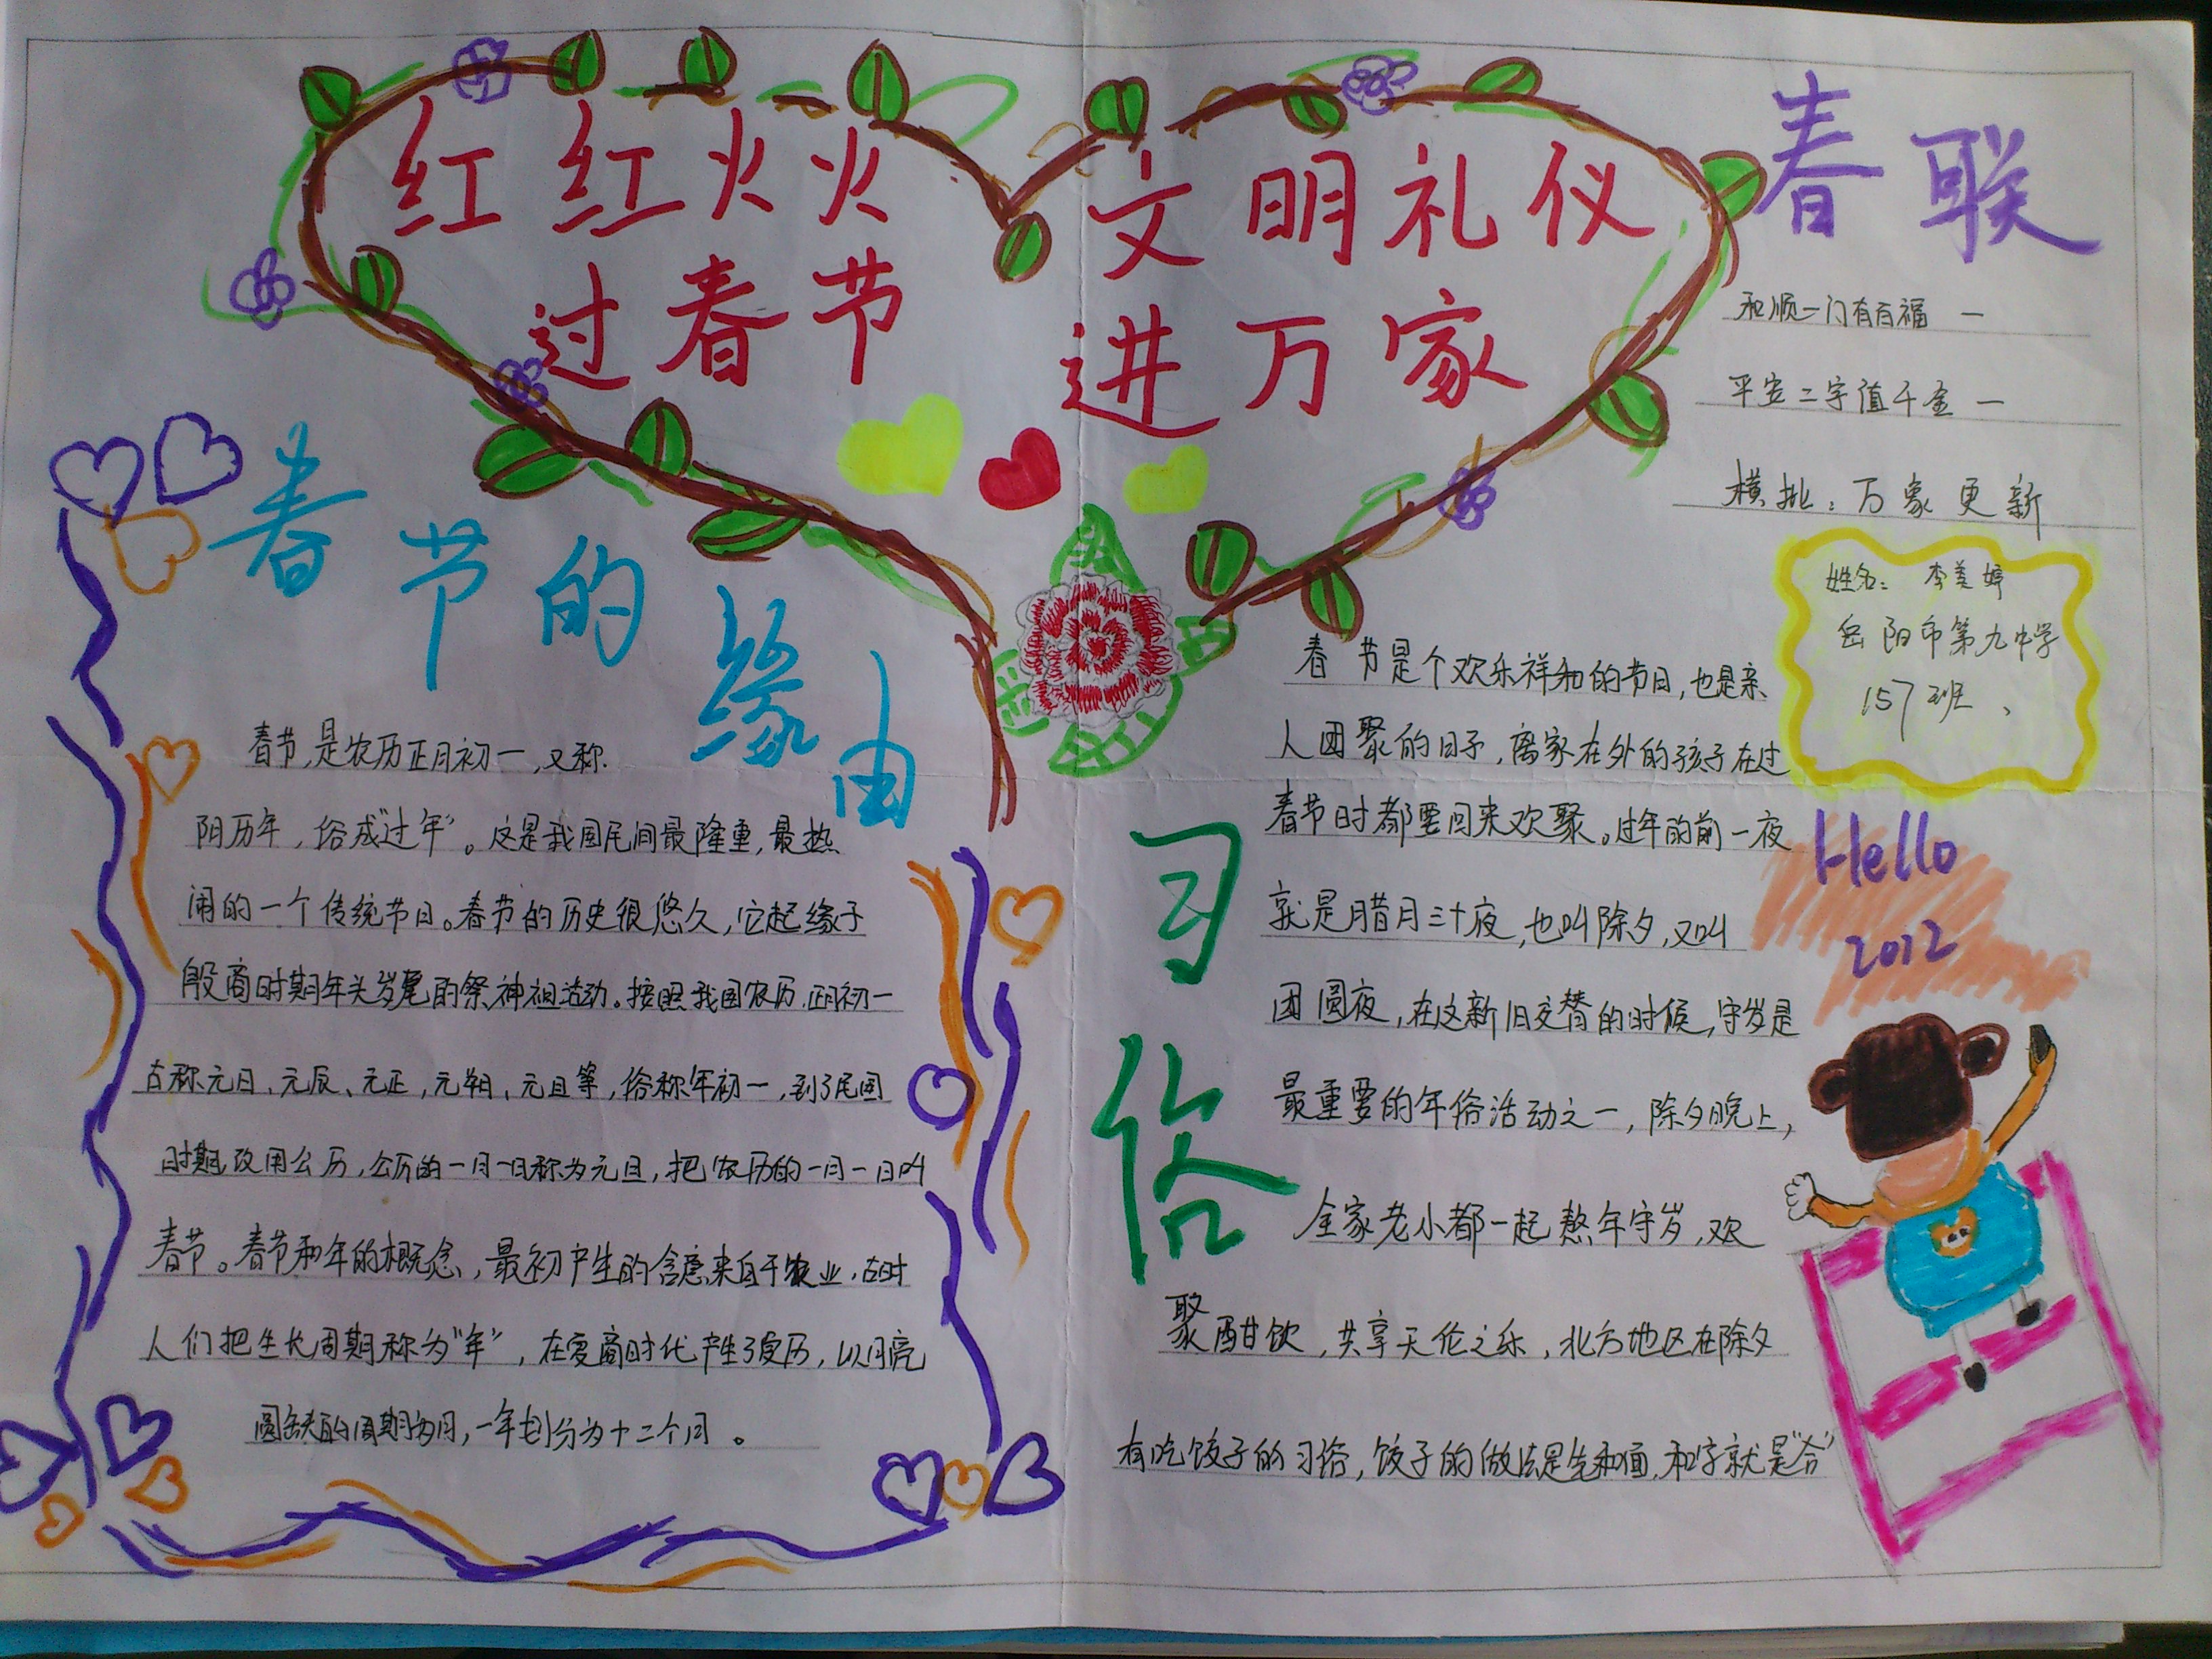 红红火火
过春节
文明礼仪
进万家
春联
和顺一门有百福
平安二字值千金
横批：万象更新
姓名：李美婷
岳阳市第九中学
157班、
Hello
2012
春节的缘由
春节，是农历正月初一，又称
阴历年，俗成“过年”。这是我国民间最隆重，最热
闹的一个传统节日。春节的历史很悠久，它起缘于
殷商时期年头岁尾的祭神祖活动。按照我国农历，正月初一
古称元日、元辰、元正，元朔、元旦等，俗称年初一，到了民国
时期，改用公历，公历的一月一日称为元旦，把农历的一月一日叫
春节。春节和年的概念，最初产生的含意来自于农业，古时
人们把生长周期称为“年”，在夏商时代产生了夏历，以月亮
圆缺的周期为月，一年划分为十二个月。
习俗
春节是个欢乐祥和的节日，也是亲
人团聚的日子，离家在外的孩子在过
春节时都要回来欢聚。过年的前一夜
就是腊月三十夜，也叫除夕，又叫
团圆夜，在这新旧交替的时候，守岁是
最重要的年俗活动之一，除夕晚上，
全家老小都一起熬年守岁，欢
聚酣饮，共享天伦之乐，北方地区在除夕
有吃饺子的习俗，饺子的做法是先和面，和字就是“合”